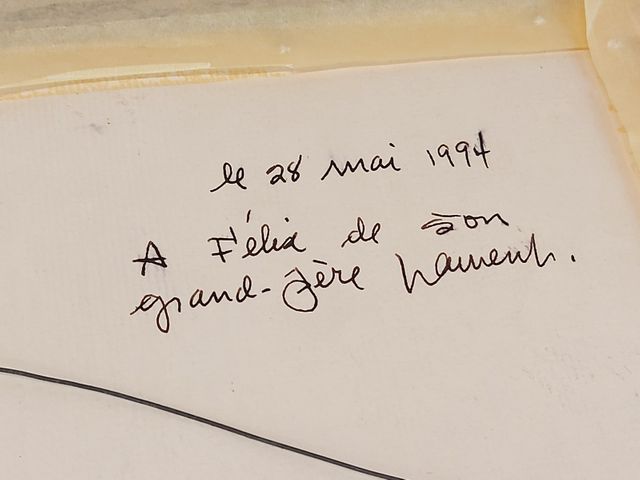 le 28 mai 1994
A Félix de son
grand-père Laurent.